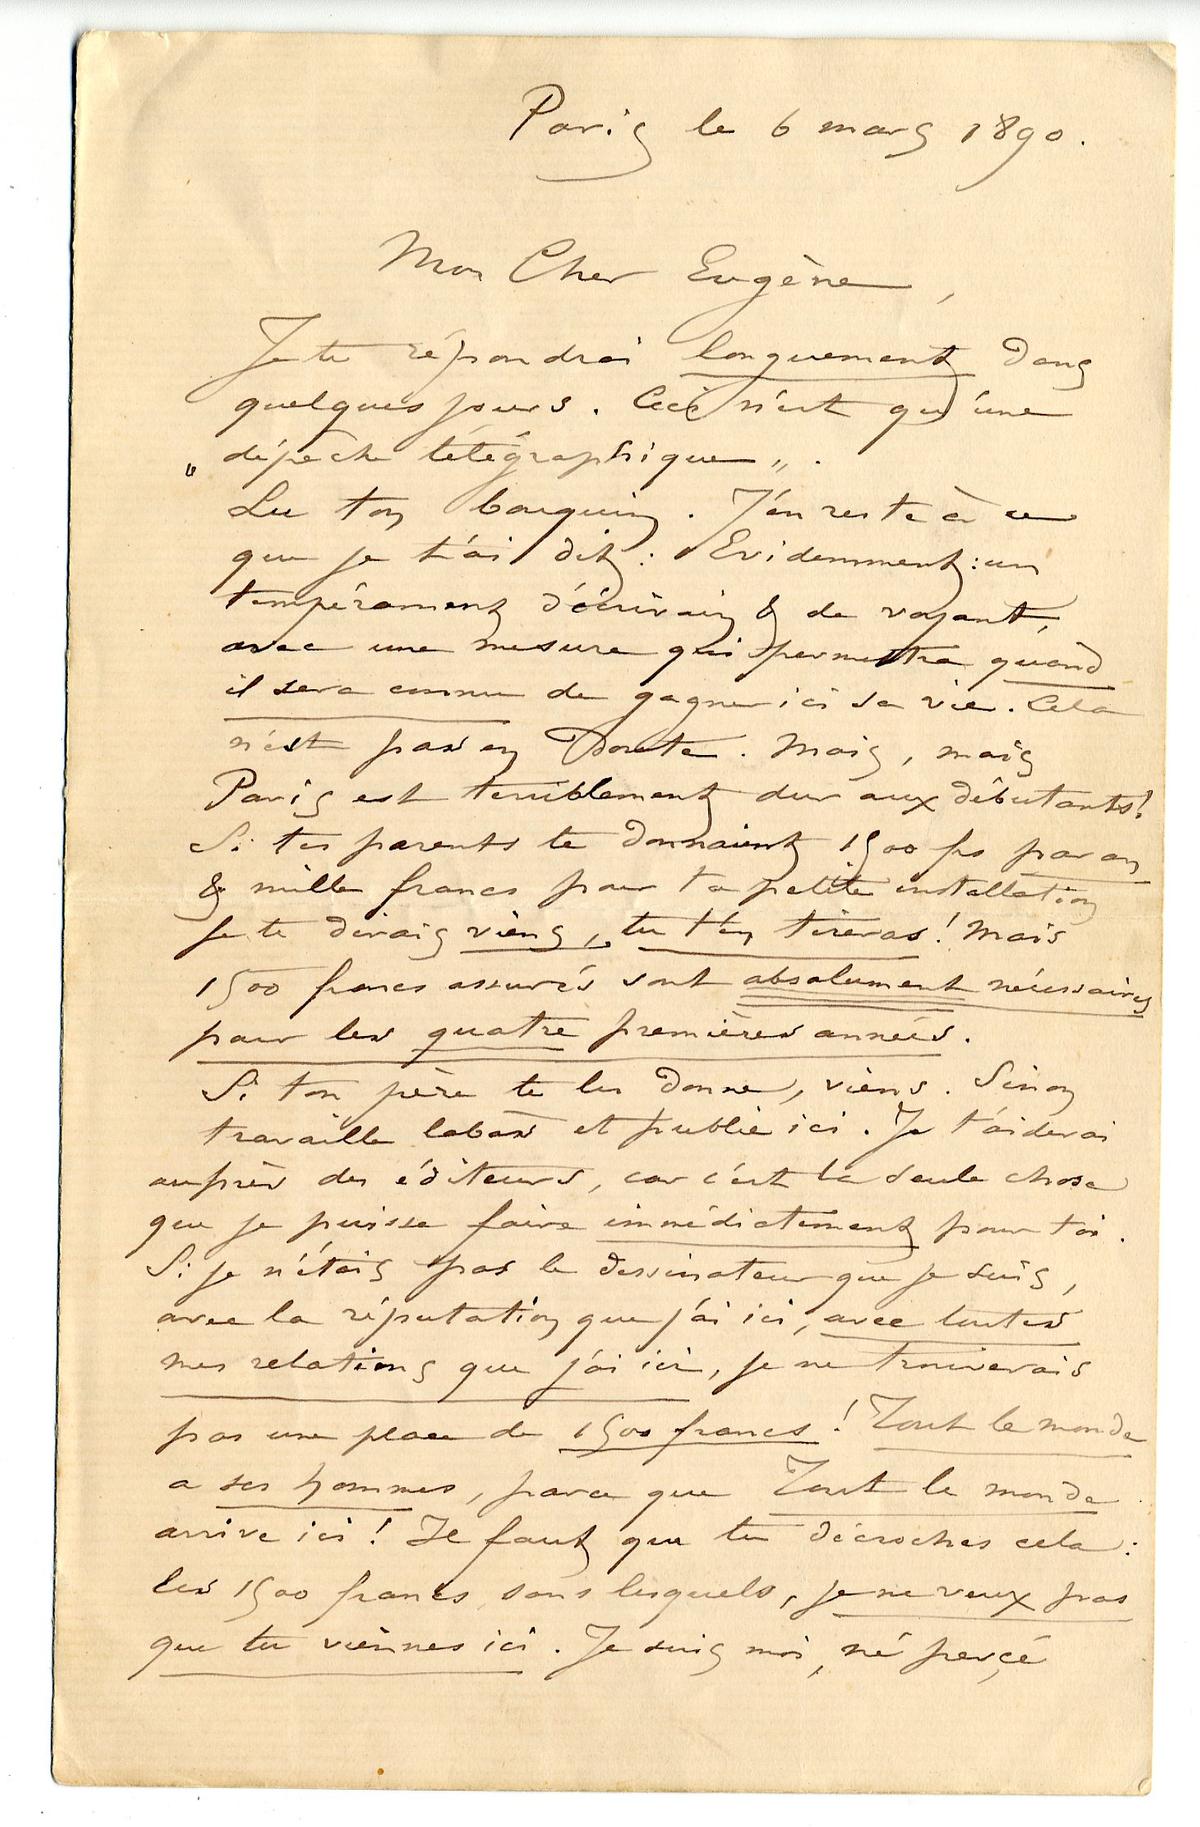 Paris le 6 mars 1890.
Mon Cher Eugène,
Je te répondrai longuement dans
quelques jours. Ceci n'est qu'une
„ dépêche télégraphique „ .
Lu ton bouquin. J'en reste à ce
que je t'ai dit : Evidemment : un
tempérament d'écrivain & de voyant,
avec une mesure qui permettra quand
il sera connu de gagner ici sa vie. Cela
n'est pas en Doute. Mais, mais
Paris est terriblement dur aux débutants !
Si tes parents te donnaient 1500 frs par an
& mille francs pour ta petite installation
je te dirais viens, tu t'en tireras ! Mais
1500 francs assurés sont absolument nécessaires
pour les quatre premières années.
Si ton père te les donne, viens. Sinon
travaille labas et publie ici. Je t'aiderai
auprès des éditeurs, car c'est la seule chose
que je puisse faire immédiatement pour toi.
Si je n'étais pas le dessinateur que je suis,
avec la réputation que j'ai ici, avec toutes
mes relations que j'ai ici, je ne trouverais
pas une place de 1500 francs ! Tout le monde
a ses hommes, parce que Tout le monde
arrive ici ! Il faut que tu décroches cela :
les 1500 francs sans lesquels, je ne veux pas
que tu viennes ici. Je suis moi, né percé